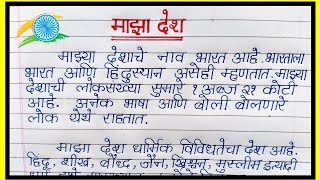 माझा देश
माझ्या देशाचे नाव भारत आहे. भारताला
भारत आणि हिंदुस्थान असेही म्हणतात. माझ्या
देशाची लोकसंख्या सुमारे १ अब्ज २१ कोटी
आहे. अनेक भाषा आणि बोली बोलणारे
लोक येथे राहतात.
माझा देश धार्मिक विविधतेचा देश आहे.
हिंदू, शीख, बौद्ध, जैन, ख्रिश्चन, मुस्लीम इत्यादी